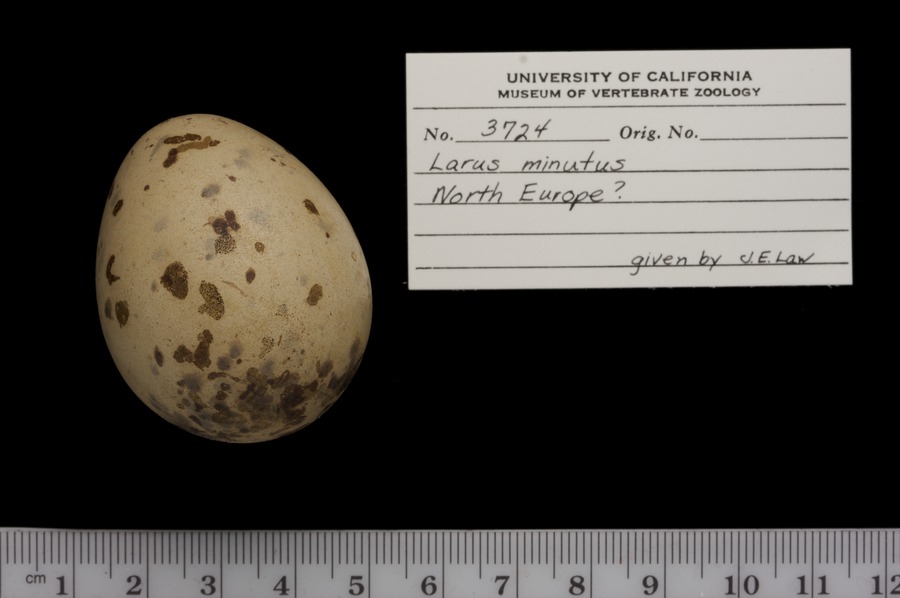 UNIVERSITY OF CALIFORNIA
MUSEUM OF VERTEBRATE ZOOLOGY
No. 3724 Orig. No.
Larus minutus
North Europe?
given by J.E. Law
cm 1 2 3 4 5 6 7 8 9 10 11 12